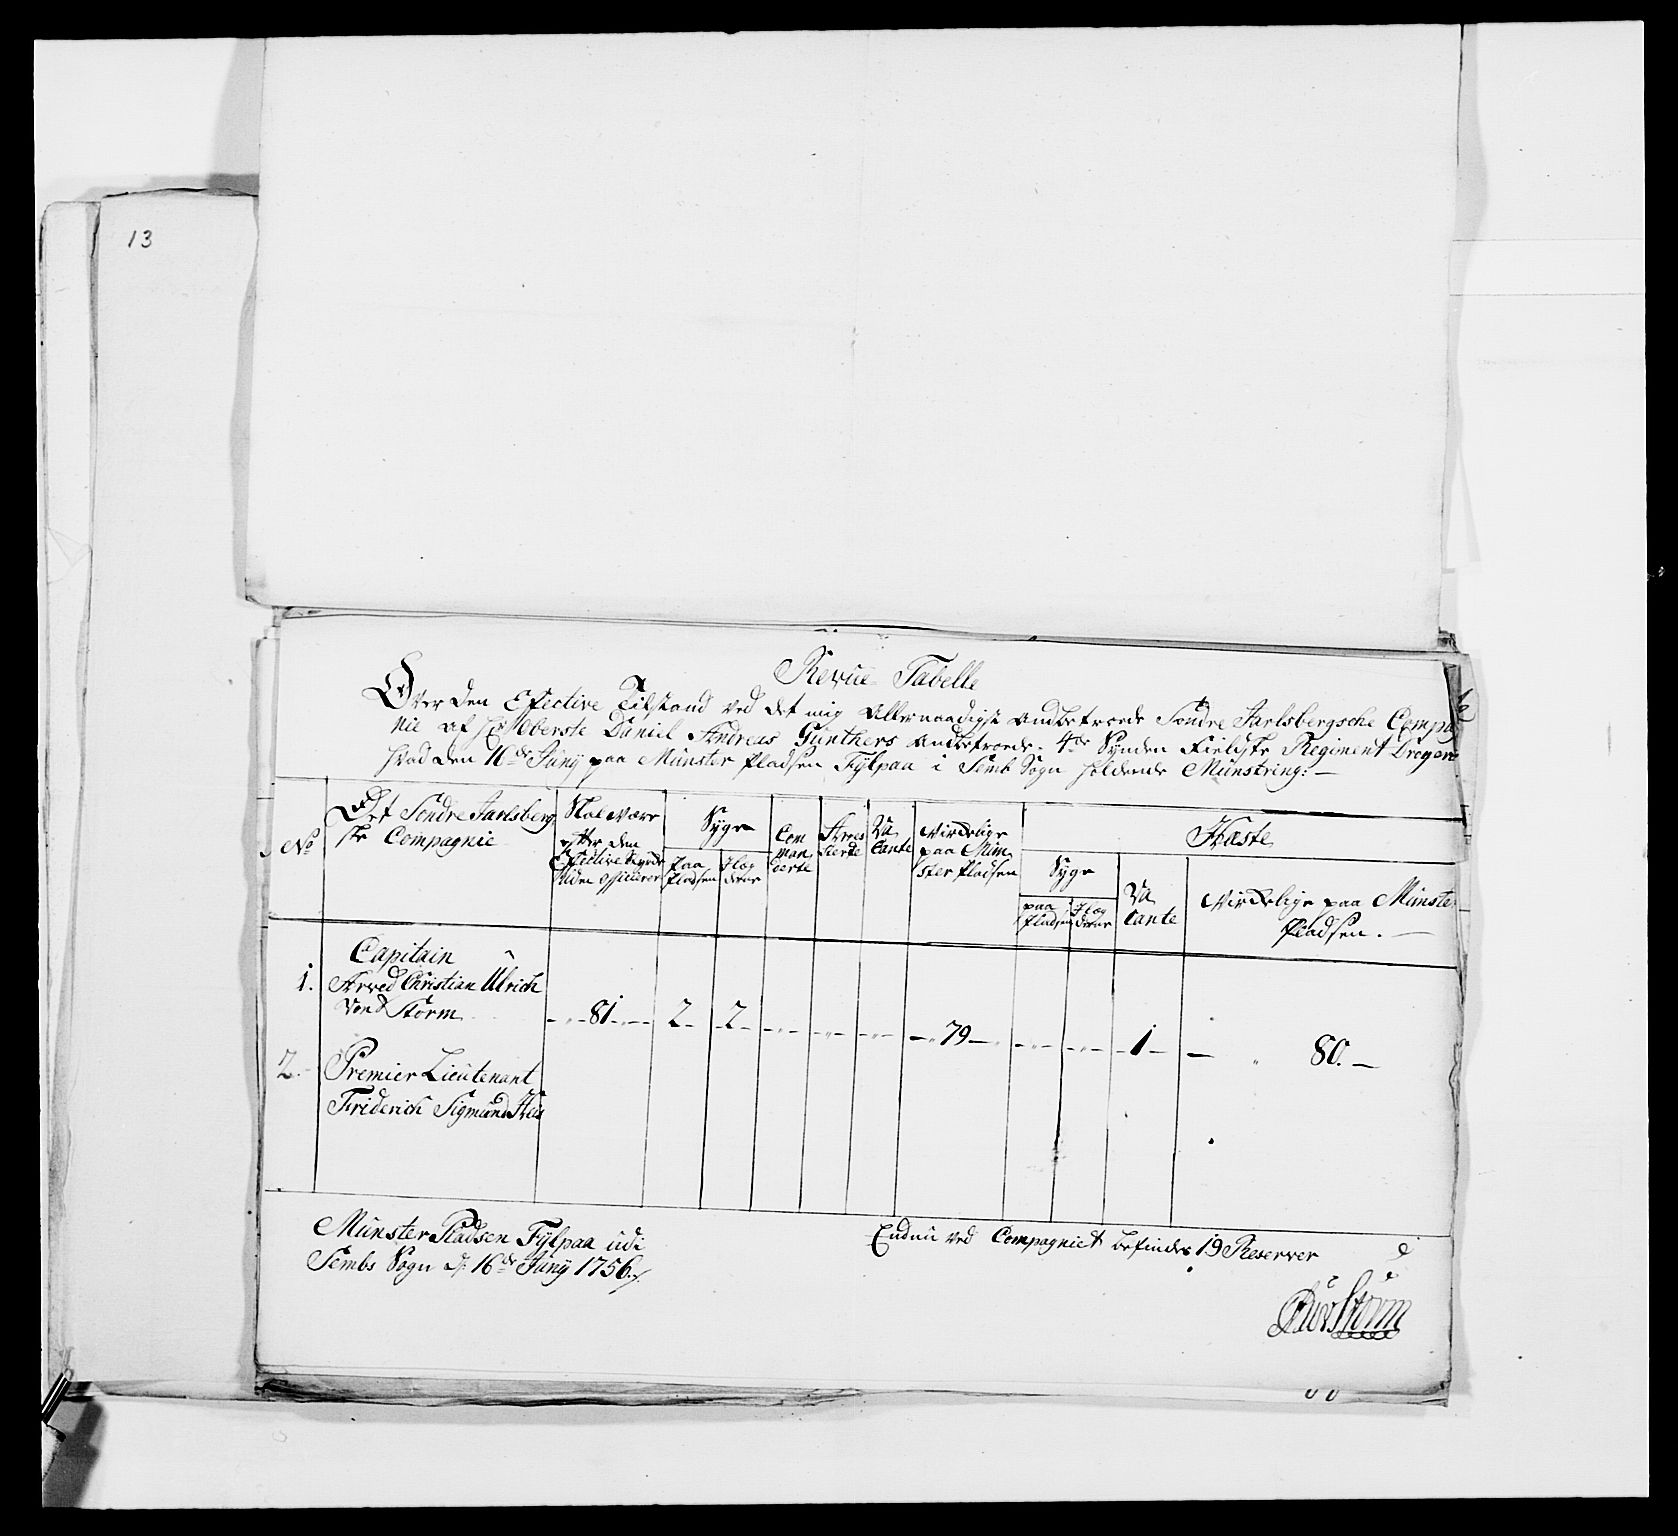 13
Revue Tabelle
Over den Effective Tilstand ved det mig Allernaadigst Andbetroede Søndre Jarlsbergsche Compag
nie af Hr Oberste Daniel Andreas Günthers Andbetroede 4de Synden Fieldske Regiment Dragoner
ved den 16de Juny paa Münster Pladsen Fylpaa i Semb Sogn holdende Münstring: —
No
Det Søndre Jarlsberg
ske Compagnie
efter den
Effective Styrcke
uden Officerer
Syge
paa
Pladsen
Com
man
derte
Arre
sterte
Va
cante
Virckelige
paa Mün
ster Pladsen
Hæste
Syge
paa
Pladsen
Va
cante
Virckelige paa Münster
Pladsen. —
1. Capitain
Arved Christian Ulrich
Vond Storm
81 2 2 79 1 80. —
2. Premier Lieutenant
Friderich Sigmund
Münster Pladsen Fylpaa udi
Sembs Sogn d: 16de Juny 1756
Endnu ved Compagniet befindes 19 Reserver
Storm